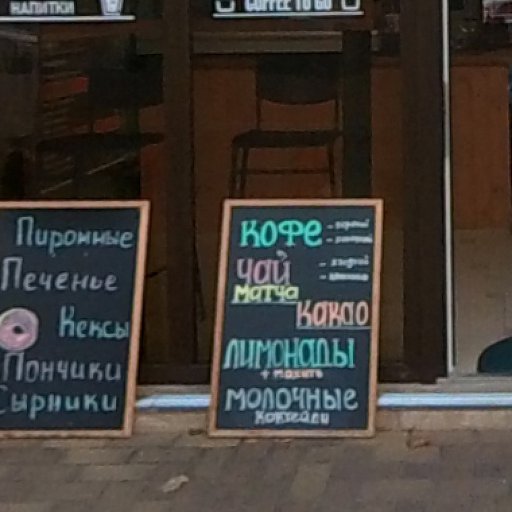 НАПИТКИ
COFFEE TO GO
Пирожные
Печенье
Кексы
Пончики
Сырники
КОФЕ
ЧАЙ
МАТЧА
КАКАО
ЛИМОНАДЫ
+ МОХИТО
МОЛОЧНЫЕ
КОКТЕЙЛИ